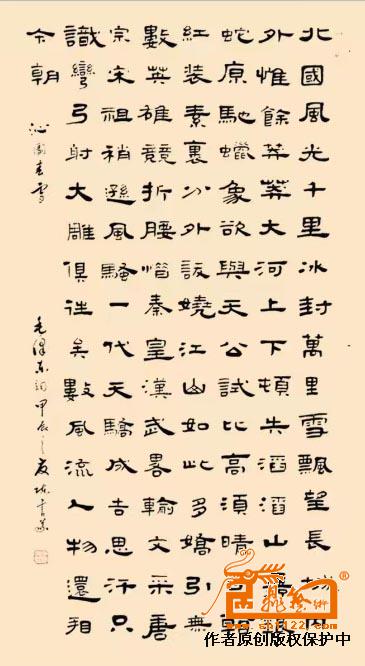 北國風光千里冰封萬里雪飄望長城内
外惟餘莽莽大河上下頓失滔滔山
蛇原馳蠟象欲與天公試比高須晴
紅装素裹分外妖嬈江山如此多嬌引無
數英雄競折腰惜秦皇漢武畧輸文采唐
宗宋祖稍遜風騷一代天驕成吉思汗只
識彎弓射大雕俱往矣數風流人物還看
今朝
沁園春雪
毛澤東詞甲辰之夏
作者原创版权保护中